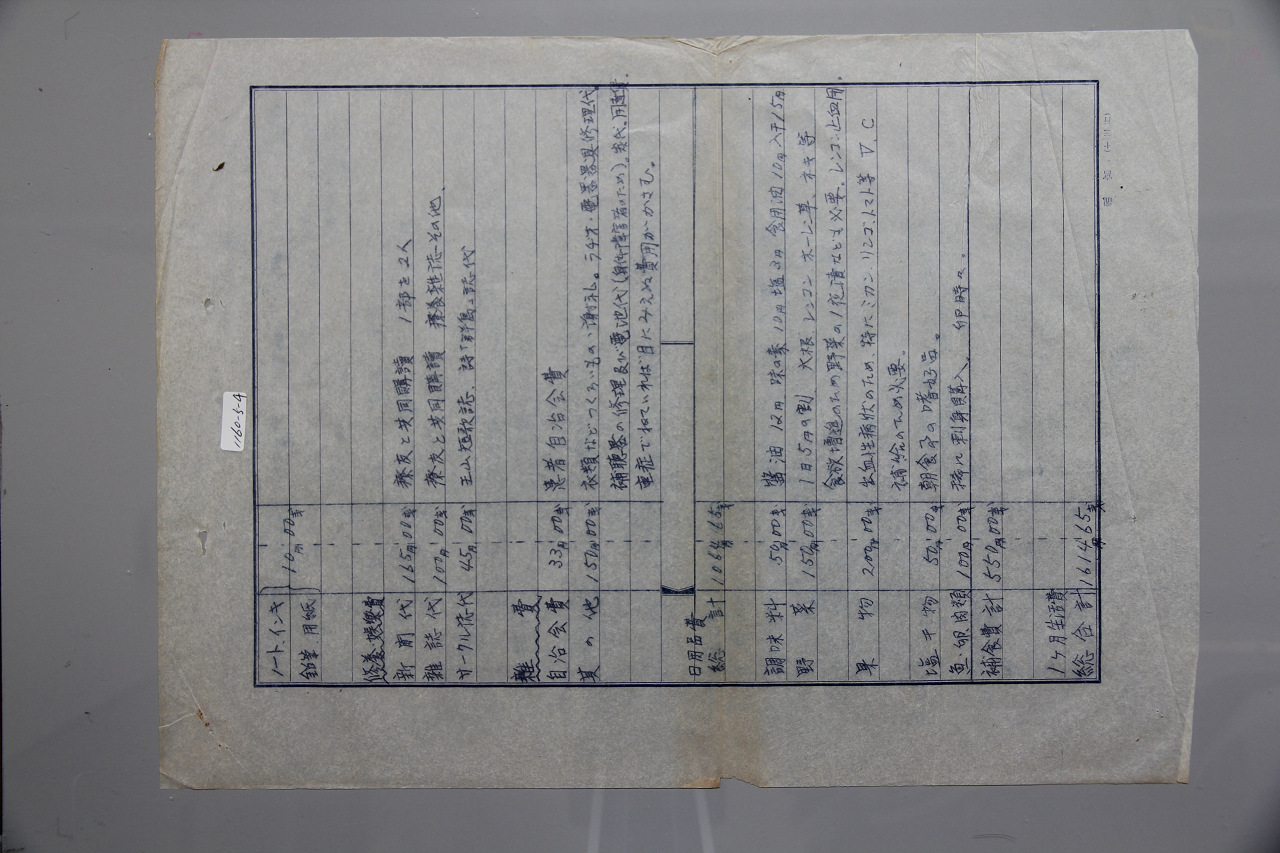 ノート、インキ
鉛筆 用紙 10円00戋
修養娯樂費
新聞代 165円00戋 療友と共同購讀 1部を2人
雜誌代 100円00戋 療友と共同購讀 療養雜誌その他
サークル誌代 45円00戋 短歌誌、詩「群島」誌代
雜費
自治会費 33円00戋 患者自治会費
其の他 150円00戋 衣類などつくろいもの、謝禮。ラヂオ・電器器具修理代。
補聽器の修理及び電池代(身体障害者のため)。
重症でねていれば目にみえぬ費用がかさむ。
日用品費
総計 1064円65戋
調味料 50円00戋 醤油12円 味の素10円 塩3円 食用油10円 入干15円
野菜 150円00戋 1日5円の割 大根 レンコン ホーレン草 ネギ等
食欲増進のため野菜の1夜漬なども必要。レンコン止血用。
果物 200円00戋 出血性病状のため、特にミカン、リンゴ、トマト等 V.C
補給のため必要。
塩干物 50円00戋 朝食会の嗜好品。
魚卵肉類 100円00戋 稀に刺身購入。 卵時々。
補食費計 550円00戋
1ヶ月生活費
総合計 1614円65戋
1160-5-4